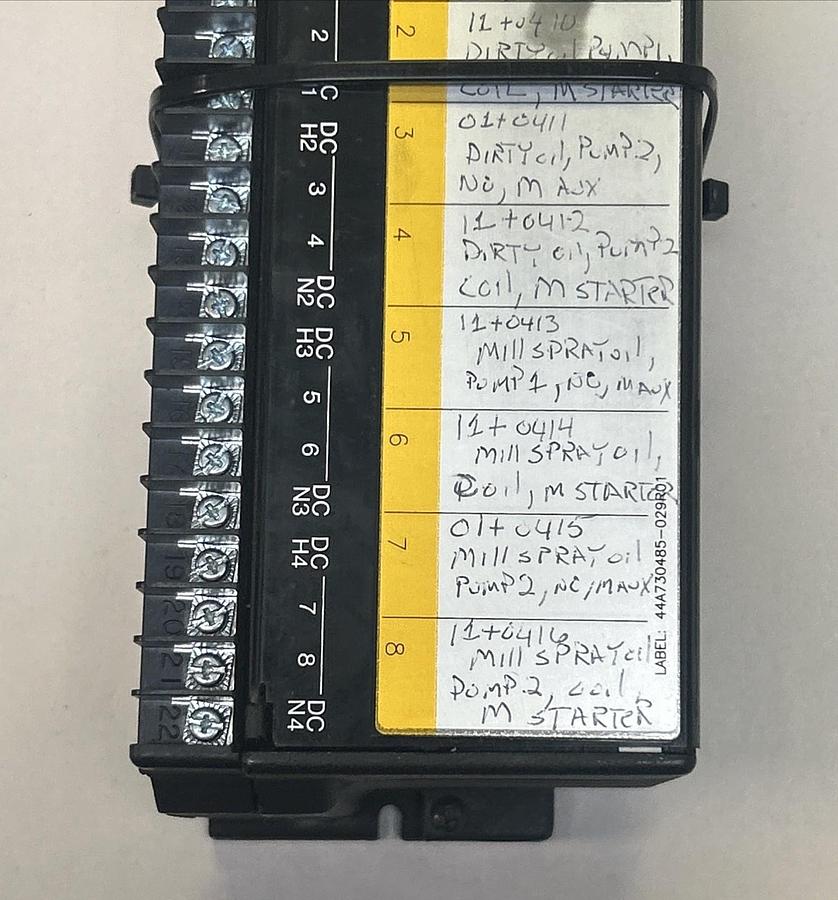 2
11+0410
DIRTY oil, PUMP1,
COIL, M STARTER
3
01+0411
DIRTY oil, PUMP.2,
NO, M AUX
4
11+0412
DIRTY oil, PUMP2
COIL, M STARTER
5
11+0413
Mill SPRAY oil,
PUMP 1, NO, M AUX
6
11+0414
Mill SPRAY oil,
Coil, M STARTER
7
01+0415
Mill SPRAY oil
PUMP 2, NC, MAUX
8
11+0416
Mill SPRAY oil
PUMP.2, coil,
M STARTER
LABEL: 44A730485-029R01
2
DC
H2
3
4
DC
N2
DC
H3
5
6
DC
N3
DC
H4
7
8
DC
N4
19
20
21
22